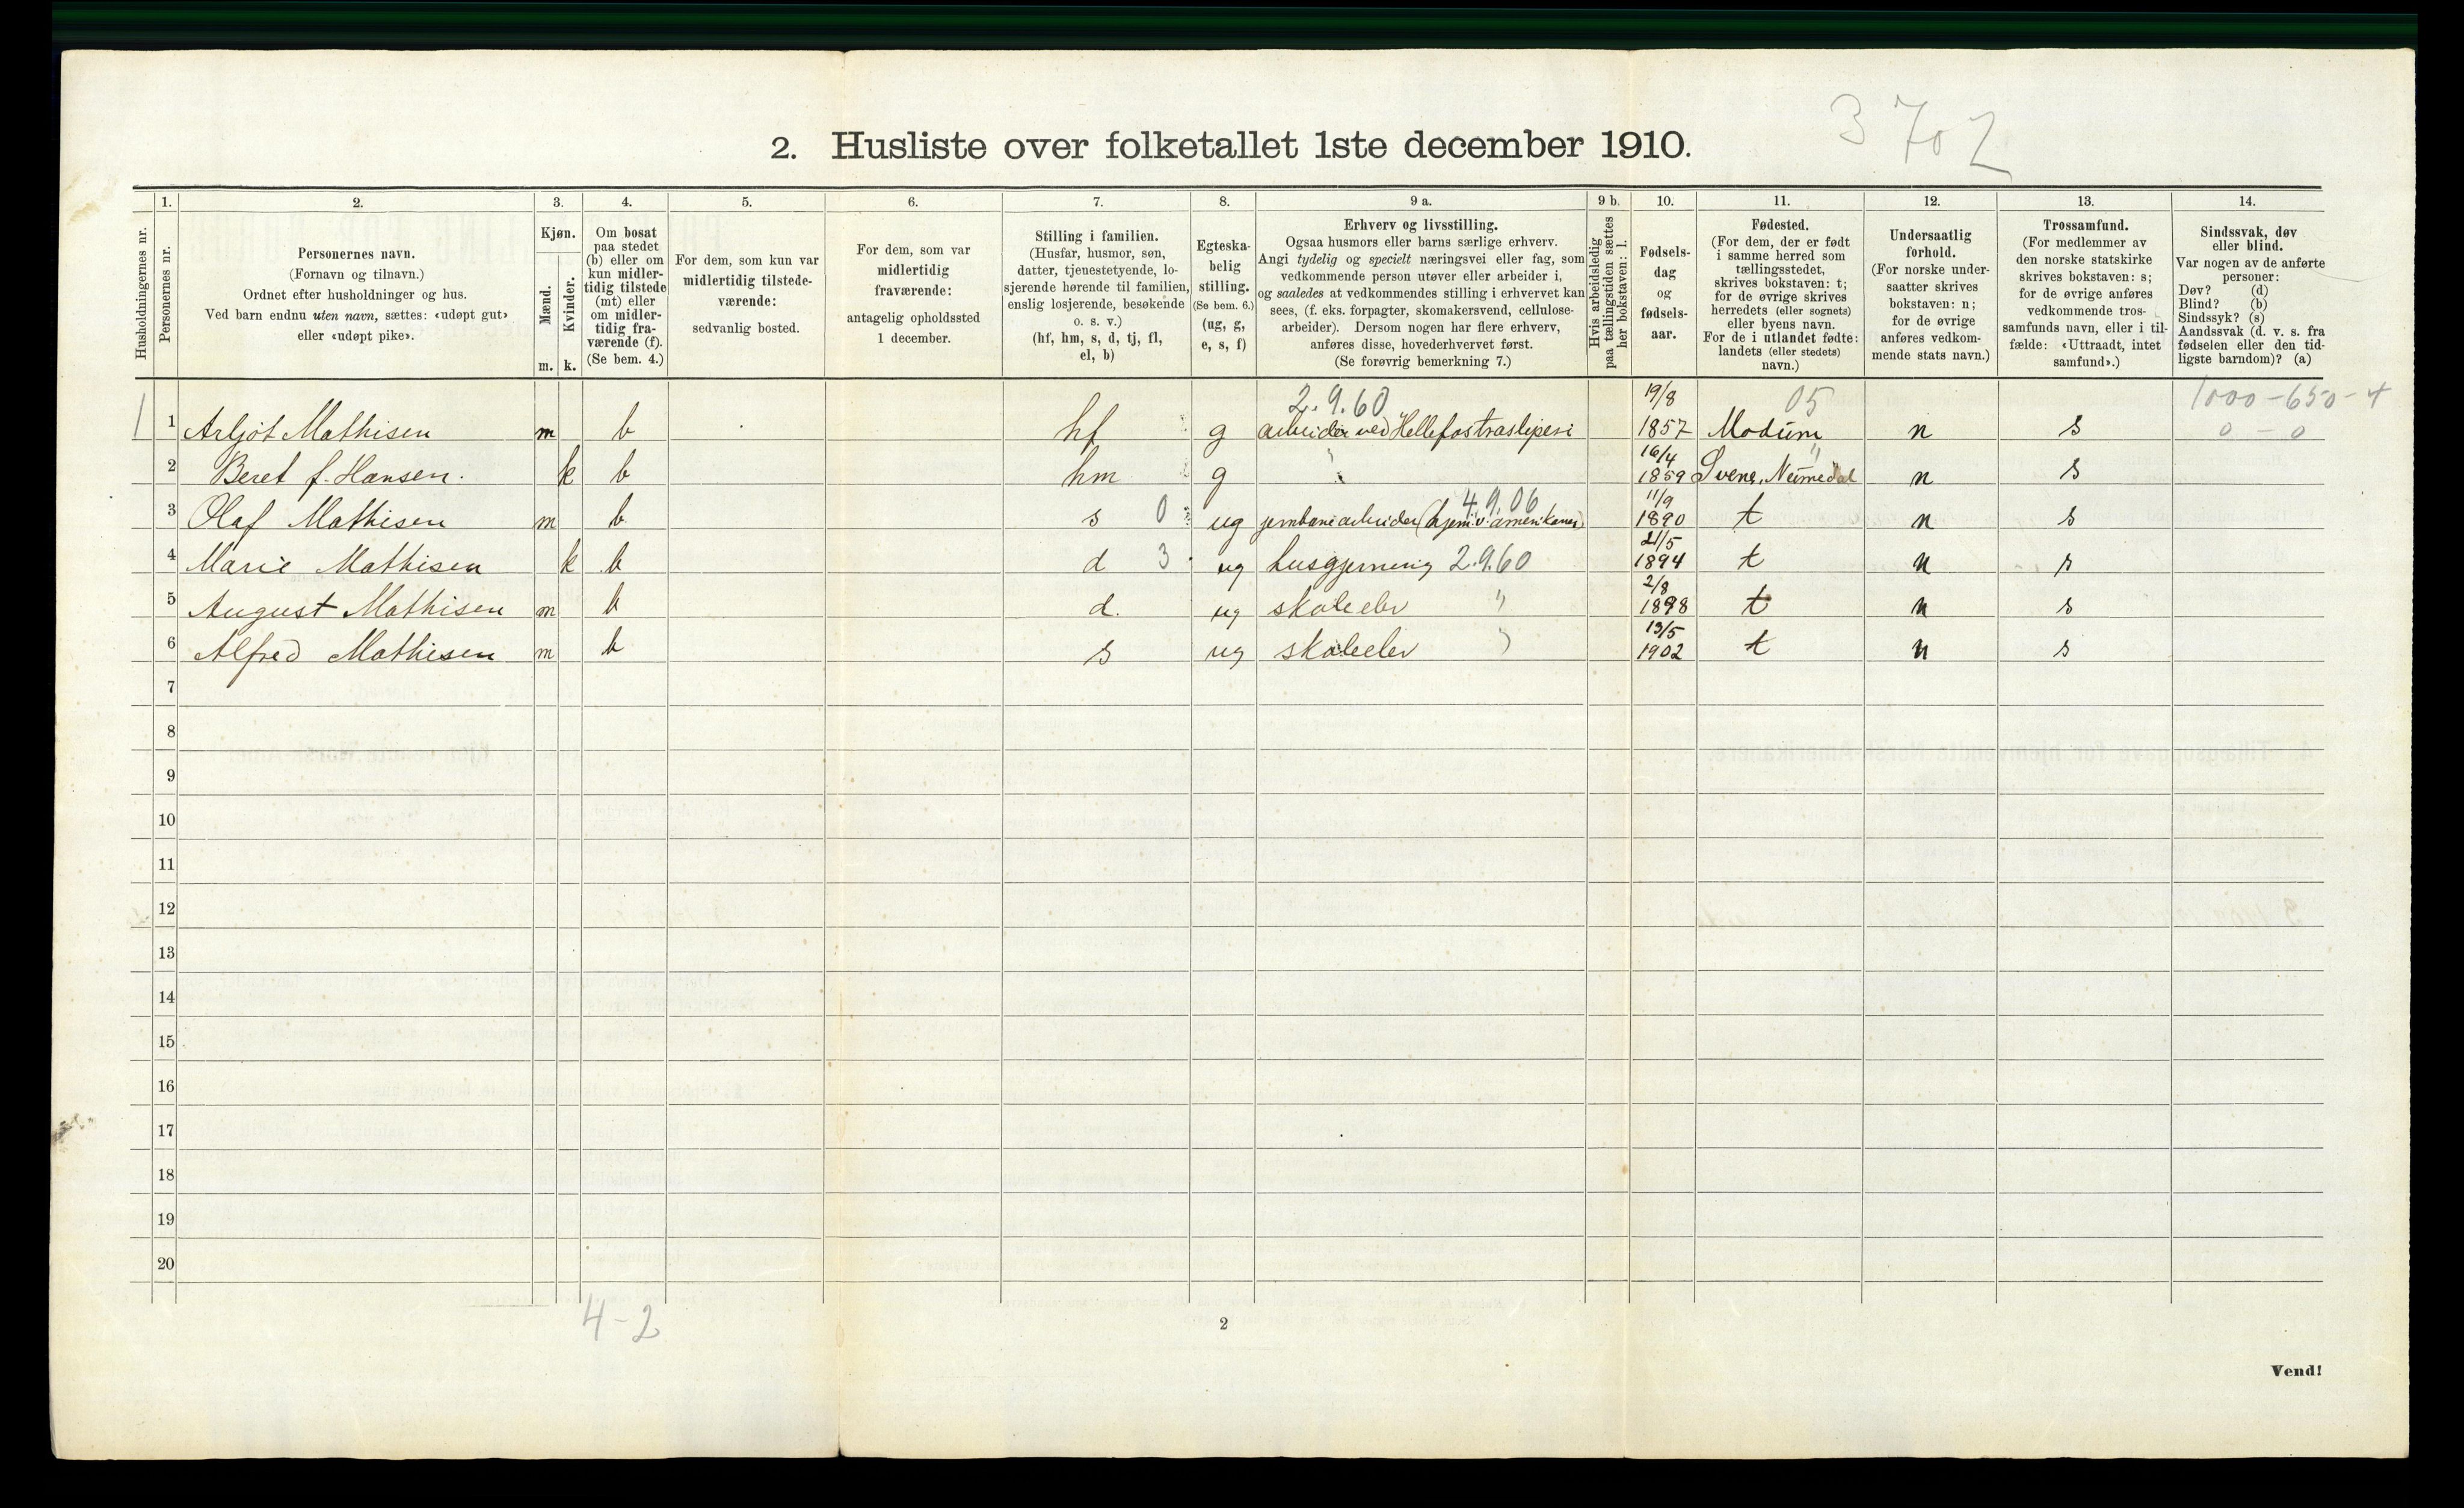 3 702
2. Husliste over folketallet 1ste december 1910.
Husholdningernes nr.
1.
Personernes nr.
2.
Personernes navn.
(Fornavn og tilnavn.)
Ordnet efter husholdninger og hus.
Ved barn endnu uten navn, sættes: «udøpt gut»
eller «udøpt pike».
3.
Kjøn.
Mænd.
Kvinder.
m. k.
4.
Om bosat
paa stedet
(b) eller om
kun midler-
tidig tilstede
(mt) eller
om midler-
tidig fra-
værende (f).
(Se bem. 4.)
5.
For dem, som kun var
midlertidig tilstede-
værende:
sedvanlig bosted.
6.
For dem, som var
midlertidig
fraværende:
antagelig opholdssted
1 december.
7.
Stilling i familien.
(Husfar, husmor, søn,
datter, tjenestetyende, lo-
sjerende hørende til familien,
enslig losjerende, besøkende
o. s. v.)
(hf, hm, s, d, tj, fl,
el, b)
8.
Egteska-
belig
stilling.
(Se bem. 6.)
(ug, g,
e, s, f)
9 a.
Erhverv og livsstilling.
Ogsaa husmors eller barns særlige erhverv.
Angi tydelig og specielt næringsvei eller fag, som
vedkommende person utøver eller arbeider i,
og saaledes at vedkommendes stilling i erhvervet kan
sees, (f. eks. forpagter, skomakersvend, cellulose-
arbeider). Dersom nogen har flere erhverv,
anføres disse, hovederhvervet først.
(Se forøvrig bemerkning 7.)
9 b.
Hvis arbeidsledig
paa tællingstiden sættes
her bokstaven: l.
10.
Fødsels-
dag
og
fødsels-
aar.
11.
Fødested.
(For dem, der er født
i samme herred som
tællingsstedet,
skrives bokstaven: t;
for de øvrige skrives
herredets (eller sognets)
eller byens navn.
For de i utlandet fødte:
landets (eller stedets)
navn.)
12.
Undersaatlig
forhold.
(For norske under-
saatter skrives
bokstaven: n;
for de øvrige
anføres vedkom-
mende stats navn.)
13.
Trossamfund.
(For medlemmer av
den norske statskirke
skrives bokstaven: s;
for de øvrige anføres
vedkommende tros-
samfunds navn, eller i til-
fælde: «Uttraadt, intet
samfund».)
14.
Sindssvak, døv
eller blind.
Var nogen av de anførte
personer:
Døv? (d)
Blind? (b)
Sindssyk? (s)
Aandssvak (d. v. s. fra
fødselen eller den tid-
ligste barndom)? (a)
2.9.60 19/8 05 1000-650-4
1 1 Arljot Mathisen m b hf g arbeider ved Hellefostræsliperi 1857 Modum n s 0 - 0
2 Beret f. Hansen. k b hm g " 16/4 1859 Svene, Numedal " n s
4.9.06
3 Olaf Mathisen m b s 0 ug jernbanearbeider (hjemv. amerikaner) 11/9 1890 t n s
4 Marie Mathisen k b d 3 ug husgjerning 2.9.60 21/5 1894 t n s
5 August Mathisen m b d. ug skoleelev " 2/8 1898 t n s
6 Alfred Mathisen m b s ug skoleelev " 13/5 1902 t n s
7
8
9
10
11
12
13
14
15
16
17
18
19
20
4-2
2
Vend!